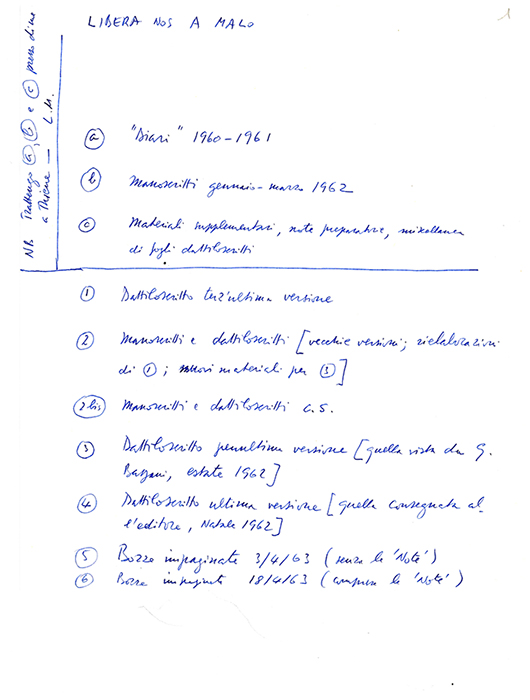 1
LIBERA NOS A MALO
NB. Trattengo (a), (b) e (c) presso di me
a Thiene — L.M.
(a) "Diari" 1960-1961
(b) Manoscritti gennaio-marzo 1962
(c) Materiali supplementari, note preparatorie, miscellanea
di fogli dattiloscritti
(1) Dattiloscritto terz'ultima versione
(2) Manoscritti e dattiloscritti [vecchie versioni; rielaborazioni
di (1); nuovi materiali per (3)]
(2 bis) Manoscritti e dattiloscritti c.s.
(3) Dattiloscritto penultima versione [quella vista da G.
Bassani, estate 1962]
(4) Dattiloscritto ultima versione [quella consegnata al-
l'editore, Natale 1962]
(5) Bozze impaginate 3/4/63 (senza le 'Note')
(6) Bozze impaginate 18/4/63 (comprese le 'Note')